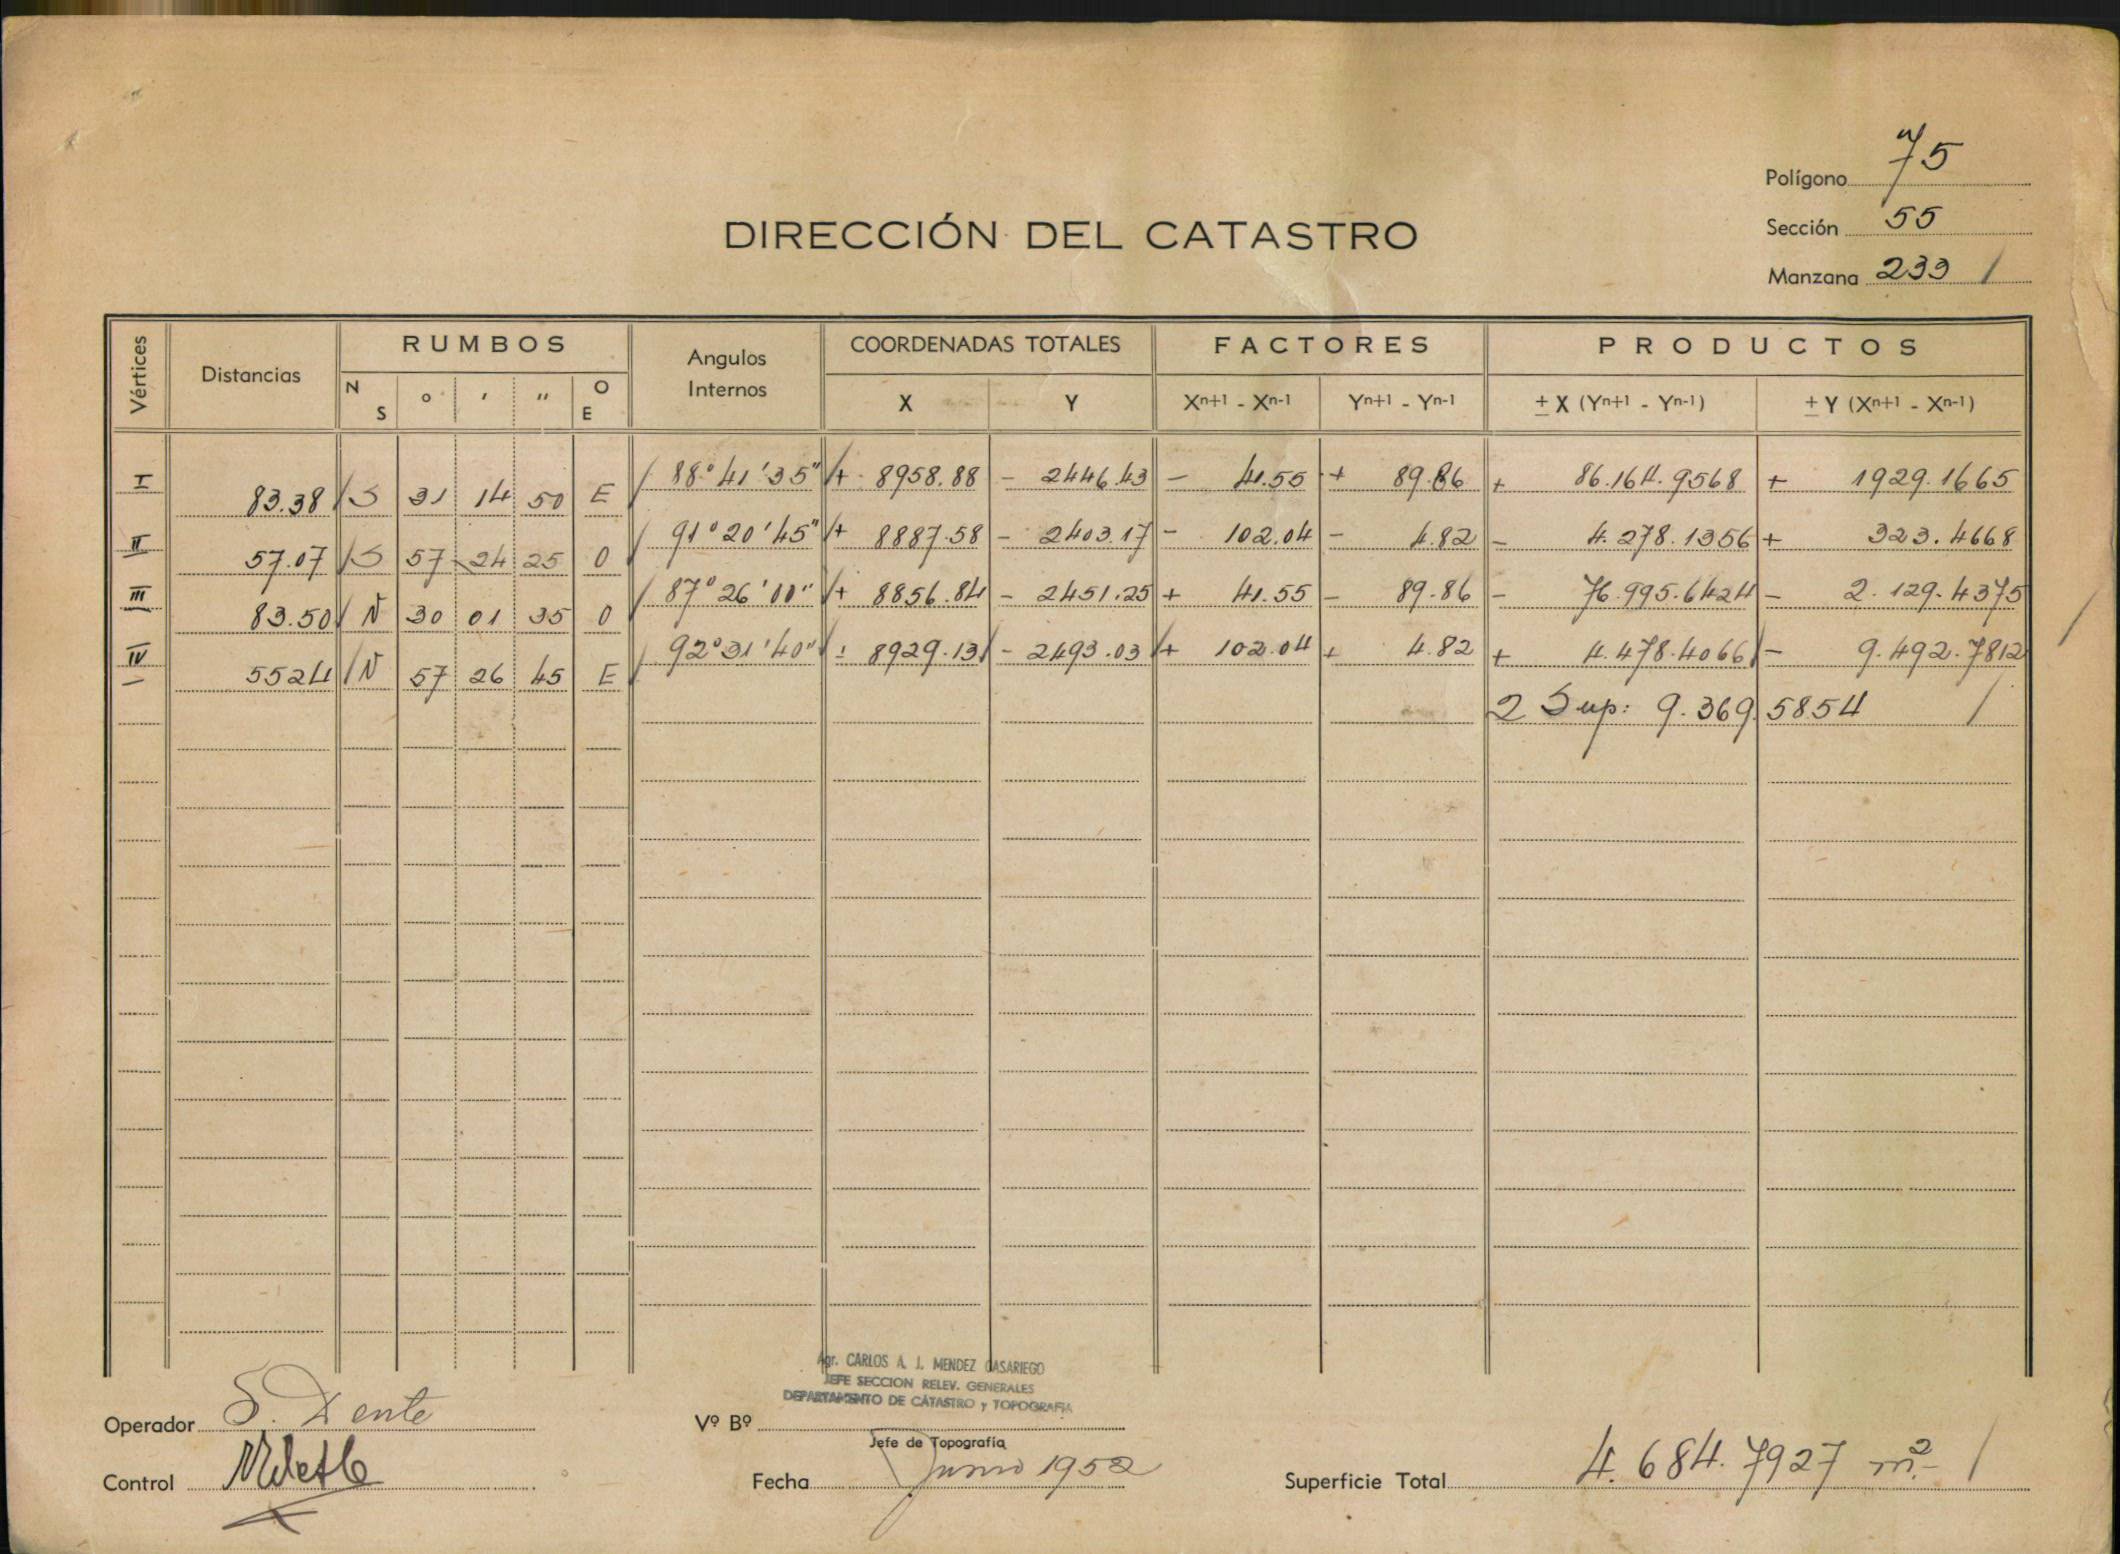 Polígono 75
Sección 55
Manzana 233 /
DIRECCIÓN DEL CATASTRO
Vértices Distancias RUMBOS Angulos Internos COORDENADAS TOTALES FACTORES PRODUCTOS
N S ° ' " O E X Y Xⁿ⁺¹ - Xⁿ⁻¹ Yⁿ⁺¹ - Yⁿ⁻¹ ± X (Yⁿ⁺¹ - Yⁿ⁻¹) ± Y (Xⁿ⁺¹ - Xⁿ⁻¹)
I 88° 41' 35" + 8958.88 - 2446.43 - 41.55 + 89.86 + 86.164.9568 + 1929.1665
83.38 S 31 14 50 E
II 91° 20' 45" + 8887.58 - 2403.17 - 102.04 - 4.82 - 4.278.1356 + 323.4668
57.07 S 57 24 25 O
III 87° 26' 00" + 8856.84 - 2451.25 + 41.55 - 89.86 - 76.995.6424 - 2.129.4375
83.50 N 30 01 35 O
IV 92° 31' 40" + 8929.13 - 2493.03 + 102.04 + 4.82 + 4.478.4066 - 9.492.7812
5524 N 57 26 45 E
2 Sup: 9.369.5854 /
Agr. CARLOS A. J. MENDEZ CASARIEGO
JEFE SECCION RELEV. GENERALES
DEPARTAMENTO DE CATASTRO y TOPOGRAFIA
Operador S. Dente
Vº Bº
Jefe de Topografía
Control
Fecha Junio 1952
Superficie Total 4.684.7927 m² /